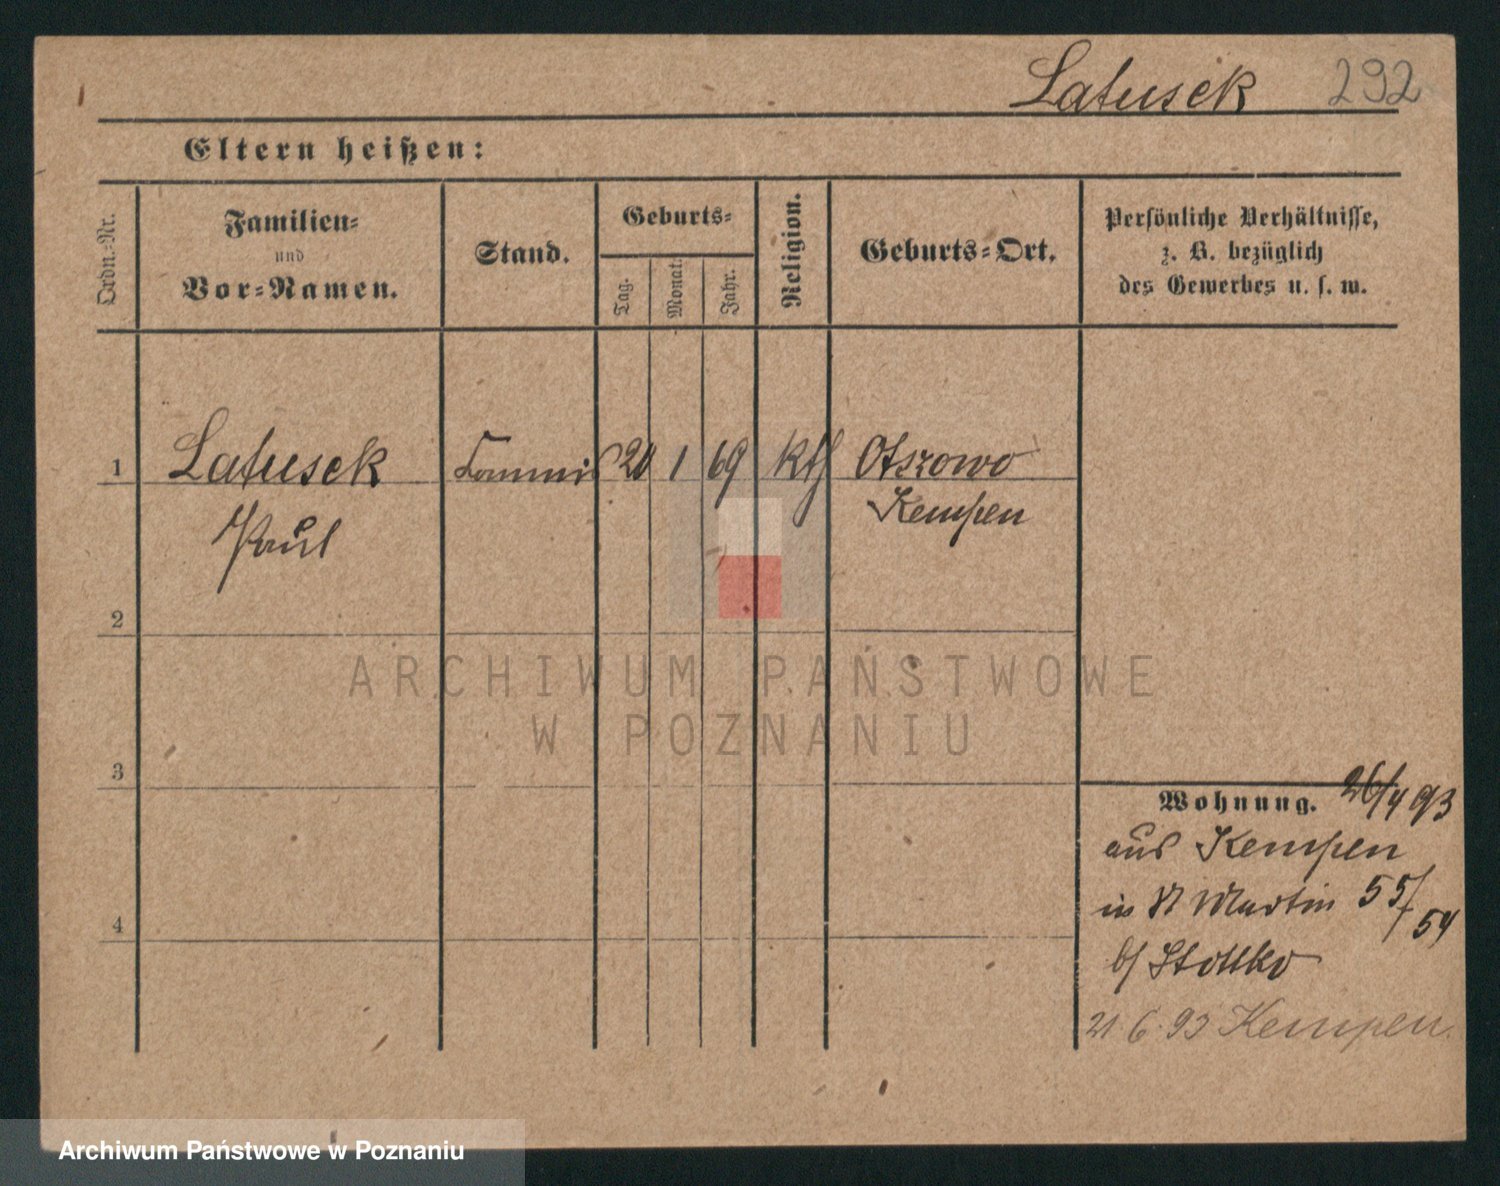 Latusek 292
Eltern heißen:
Ordn.-Nr.
Familien-
und
Vor-Namen.
Stand.
Geburts-
Tag.
Monat.
Jahr.
Religion.
Geburts-Ort.
Persönliche Verhältnisse,
z. B. bezüglich
des Gewerbes u. s. w.
1 Latusek Commis 20 1 69 Kth Otszowo
Paul Kempen
2
3
4
Wohnung. 26/4 93
aus Kempen
in St Martin 55/
54
b/ Stottko
21 6. 93 Kempen.
ARCHIWUM PAŃSTWOWE
W POZNANIU
Archiwum Państwowe w Poznaniu